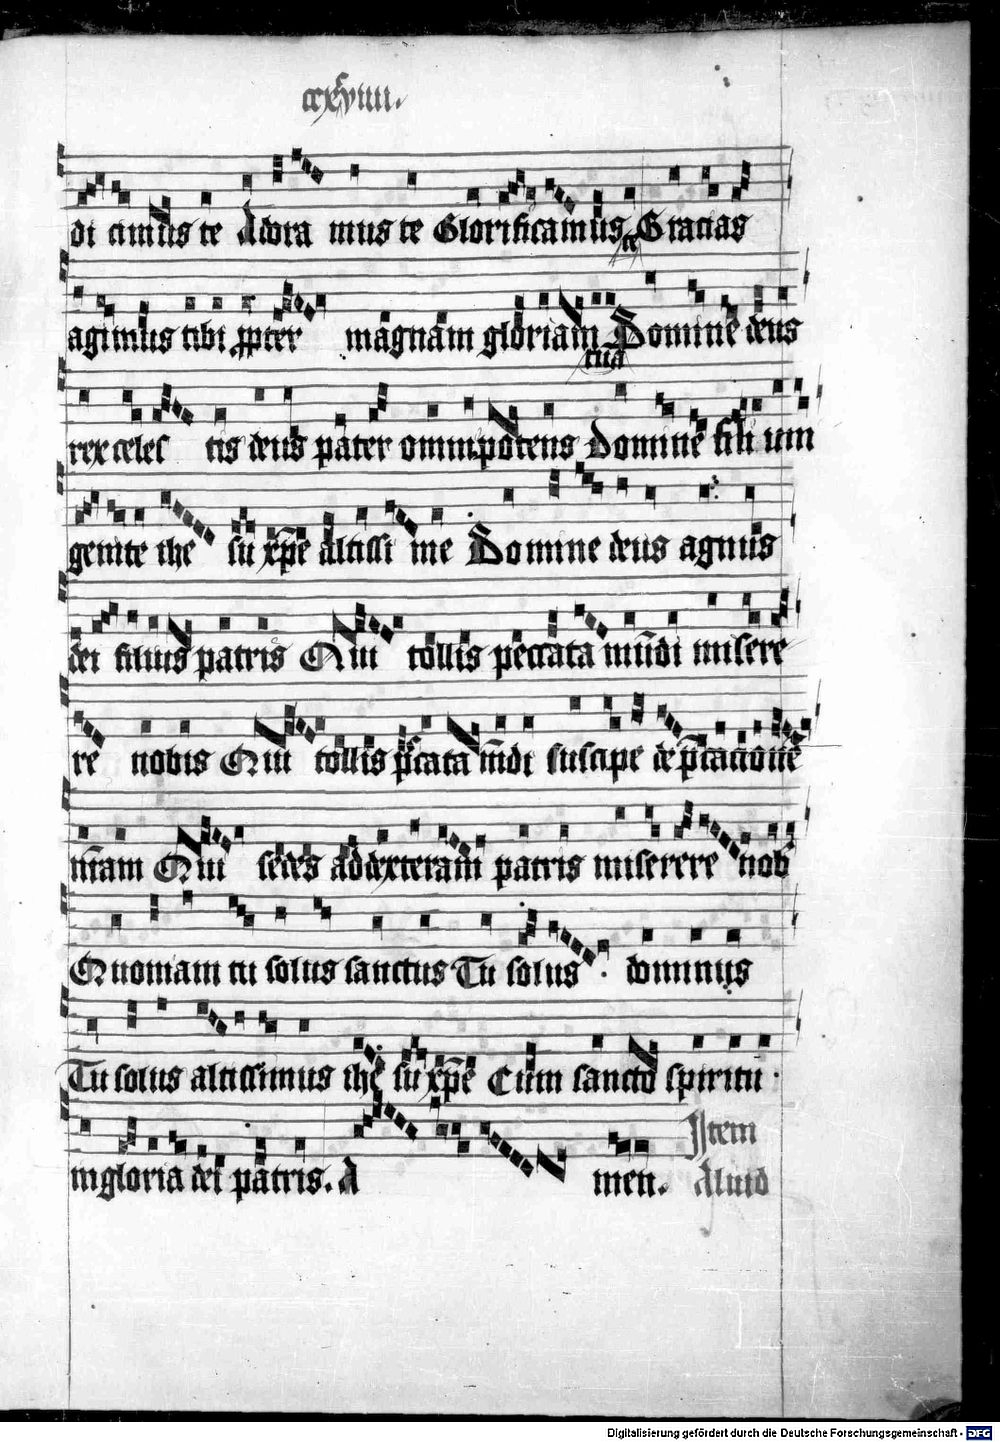 ccxviiii.
di cimus te Adora mus te Glorificamus te Gracias
agimus tibi ꝓpter magnam gloriam tua Domine deus
rex celes tis deus pater omnipotens Domine fili uni
genite ihe su xp̄e altissi me Domine deus agnus
dei filius patris Qui tollis peccata mūdi misere
re nobis Qui tollis pc̄cata mūdi suscipe de p̄cacionē
nr̄am Qui sedes ad dexteram patris miserere nob
Quoniam tu solus sanctus Tu solus dominus
Tu solus altissimus ihe su xp̄e Cum sancto spiritu
in gloria dei patris. A men. Item
Aliud
Digitalisierung gefördert durch die Deutsche Forschungsgemeinschaft - DFG